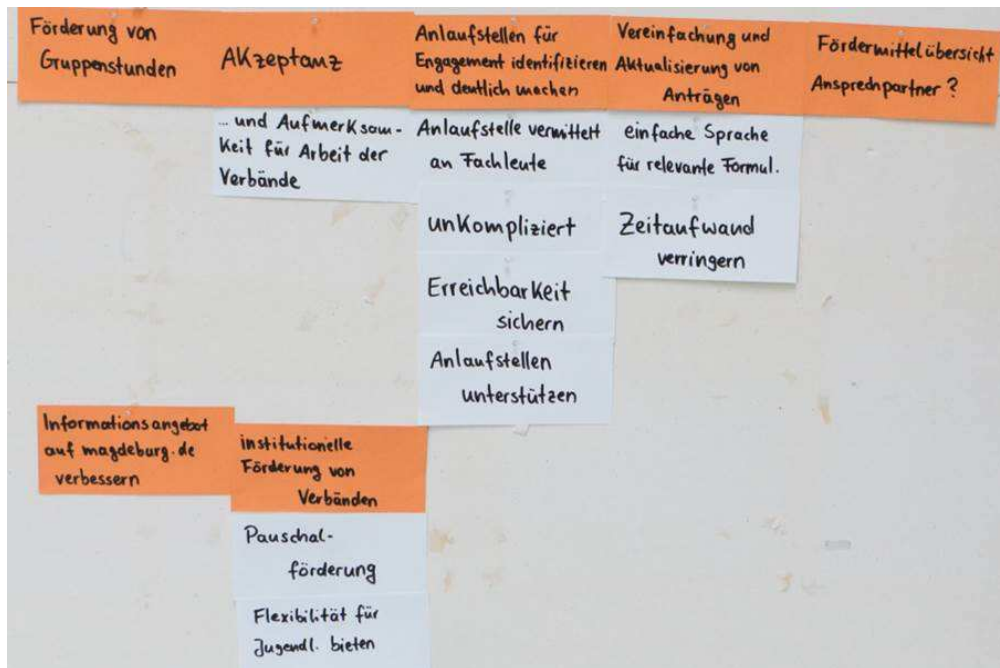 Förderung von
Gruppenstunden
Akzeptanz
... und Aufmerksam-
keit für Arbeit der
Verbände
Anlaufstellen für
Engagement identifizieren
und deutlich machen
Anlaufstelle vermittelt
an Fachleute
unkompliziert
Erreichbarkeit
sichern
Anlaufstellen
unterstützen
Vereinfachung und
Aktualisierung von
Anträgen
einfache Sprache
für relevante Formul.
Zeitaufwand
verringern
Fördermittelübersicht
Ansprechpartner?
Informationsangebot
auf magdeburg.de
verbessern
institutionelle
Förderung von
Verbänden
Pauschal-
förderung
Flexibilität für
Jugendl. bieten